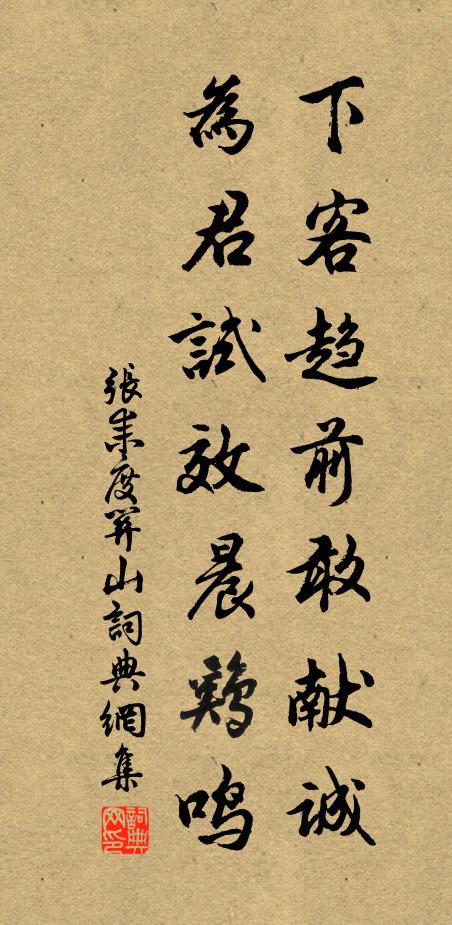 下客趋前敢献诚
為君試效晨鷄鳴
張耒度關山詞典網集
詞典網印